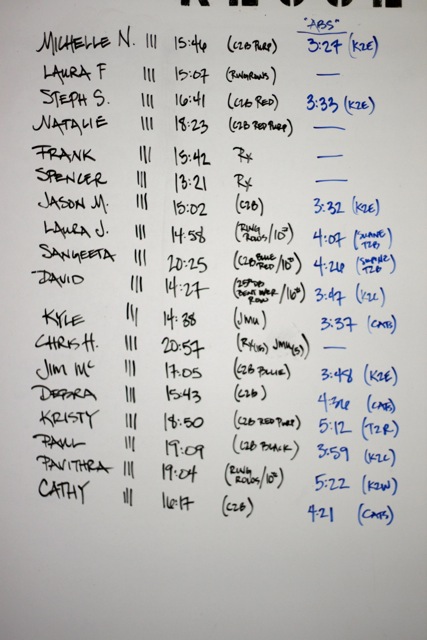 "ABS"
MICHELLE N. III 15:46 (C2B PURP) 3:27 (K2E)
LAURA F III 15:07 (RINGROWS) —
STEPH S. III 16:41 (C2B RED) 3:33 (K2E)
NATALIE III 18:23 (C2B RED PURP) —
FRANK III 15:42 Rx —
SPENCER III 13:21 Rx —
JASON M. III 15:02 (C2B) 3:32 (K2E)
LAURA J. III 14:58 (RING ROWS/10#) 4:07 T2B)
SANGEETA III 20:25 (C2B BLUE RED/10#) 4:26 T2B)
DAVID III 14:27 BENT OVER ROW 3:47 (K2C)
KYLE III 14:38 (JMU) 3:37 (CAB)
CHRIS H. III 20:57 JMU(S)) —
JIM Mc III 17:05 (C2B 3:48 (K2E)
DEBRA III 15:43 (C2B) 4:36 (CAB)
KRISTY III 18:50 (C2B RED PURP) 5:12 (T2R)
PAUL III 19:09 (C2B BLACK) 3:59 (K2C)
PAVITHRA III 19:04 (RING ROWS/10#) 5:22
CATHY III 16:17 (C2B) 4:21 (CAB)